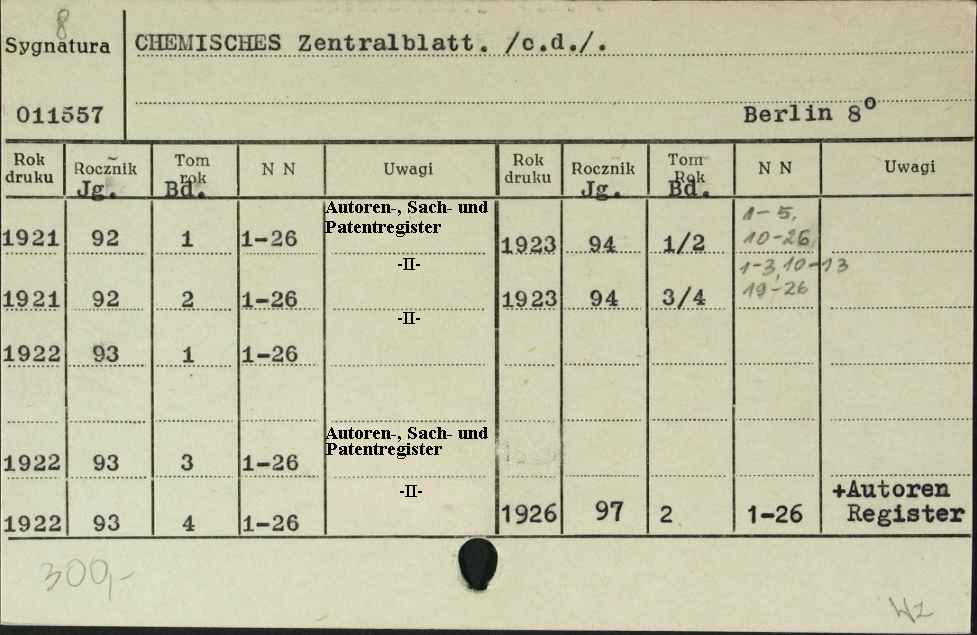 8
Sygnatura
CHEMISCHES Zentralblatt. /c.d./.
011557
Berlin 8°
Rok druku Rocznik Jg. Tom rok Bd. N N Uwagi Rok druku Rocznik Jg. Tom Rok Bd. N N Uwagi
Autoren-, Sach- und
Patentregister
1921 92 1 1-26
-II-
1921 92 2 1-26
-II-
1922 93 1 1-26
Autoren-, Sach- und
Patentregister
1922 93 3 1-26
-II-
1922 93 4 1-26
1-5,
10-26,
1923 94 1/2
1-3,10-13
19-26
1923 94 3/4
+Autoren
Register
1926 97 2 1-26
300,-
Wz